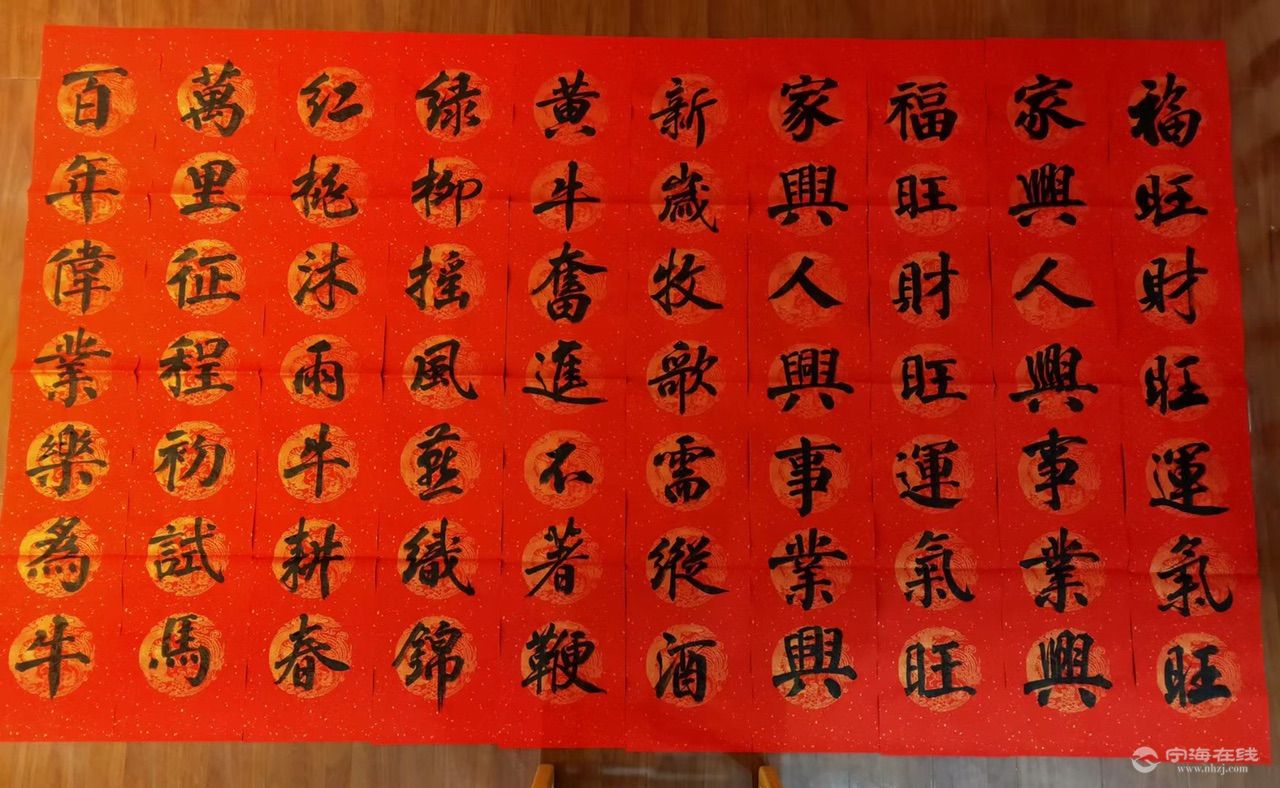 福旺財旺運氣旺
家興人興事業興
福旺財旺運氣旺
家興人興事業興
新歲牧歌需縱酒
黄牛奮進不著鞭
绿柳摇風燕織錦
红桃沐雨牛耕春
萬里征程初試馬
百年偉業樂為牛
宁海在线
www.nhzj.com